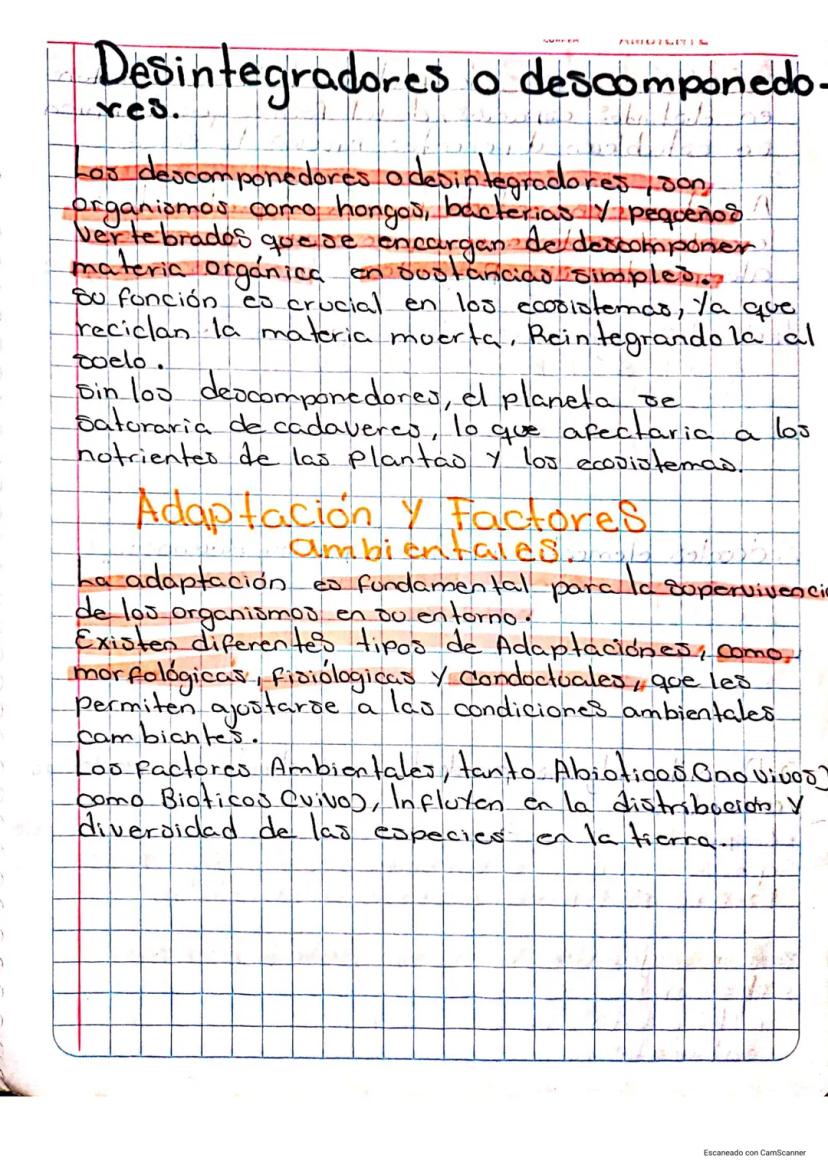 Desintegradores o descomponedo-
res.
Los descomponedores o desintegradores, son
organismos como hongos, bacterias y pequeños
vertebrados que se encargan de descomponer
materia orgánica en sustancias simples.
Su función es crucial en los ecosistemas, Ya que
reciclan la materia muerta, Reintegrandola al
suelo.
Sin los descomponedores, el planeta se
saturaria de cadaveres, lo que afectaria a los
nutrientes de las plantas y los ecosistemas.
Adaptación y Factores
ambientales.
La adaptación es fundamental para la supervivenci
de los organismos en su entorno.
Existen diferentes tipos de Adaptaciónes, como
morfológicas, fisiólogicas y conductuales, que les
permiten ajustarse a las condiciones ambientales
cambiantes.
Los factores Ambientales, tanto Abioticos (no vivos)
como Bioticos (vivos), Influyen en la distribución y
diversidad de las especies en la tierra.
Escaneado con CamScanner